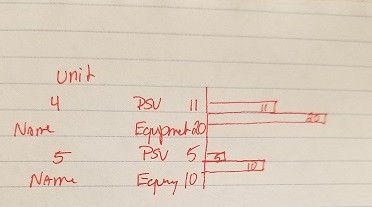 unit
4 PSV 11 11
Name Equipmet 20 20
5 PSV 5 5
Name 10 10